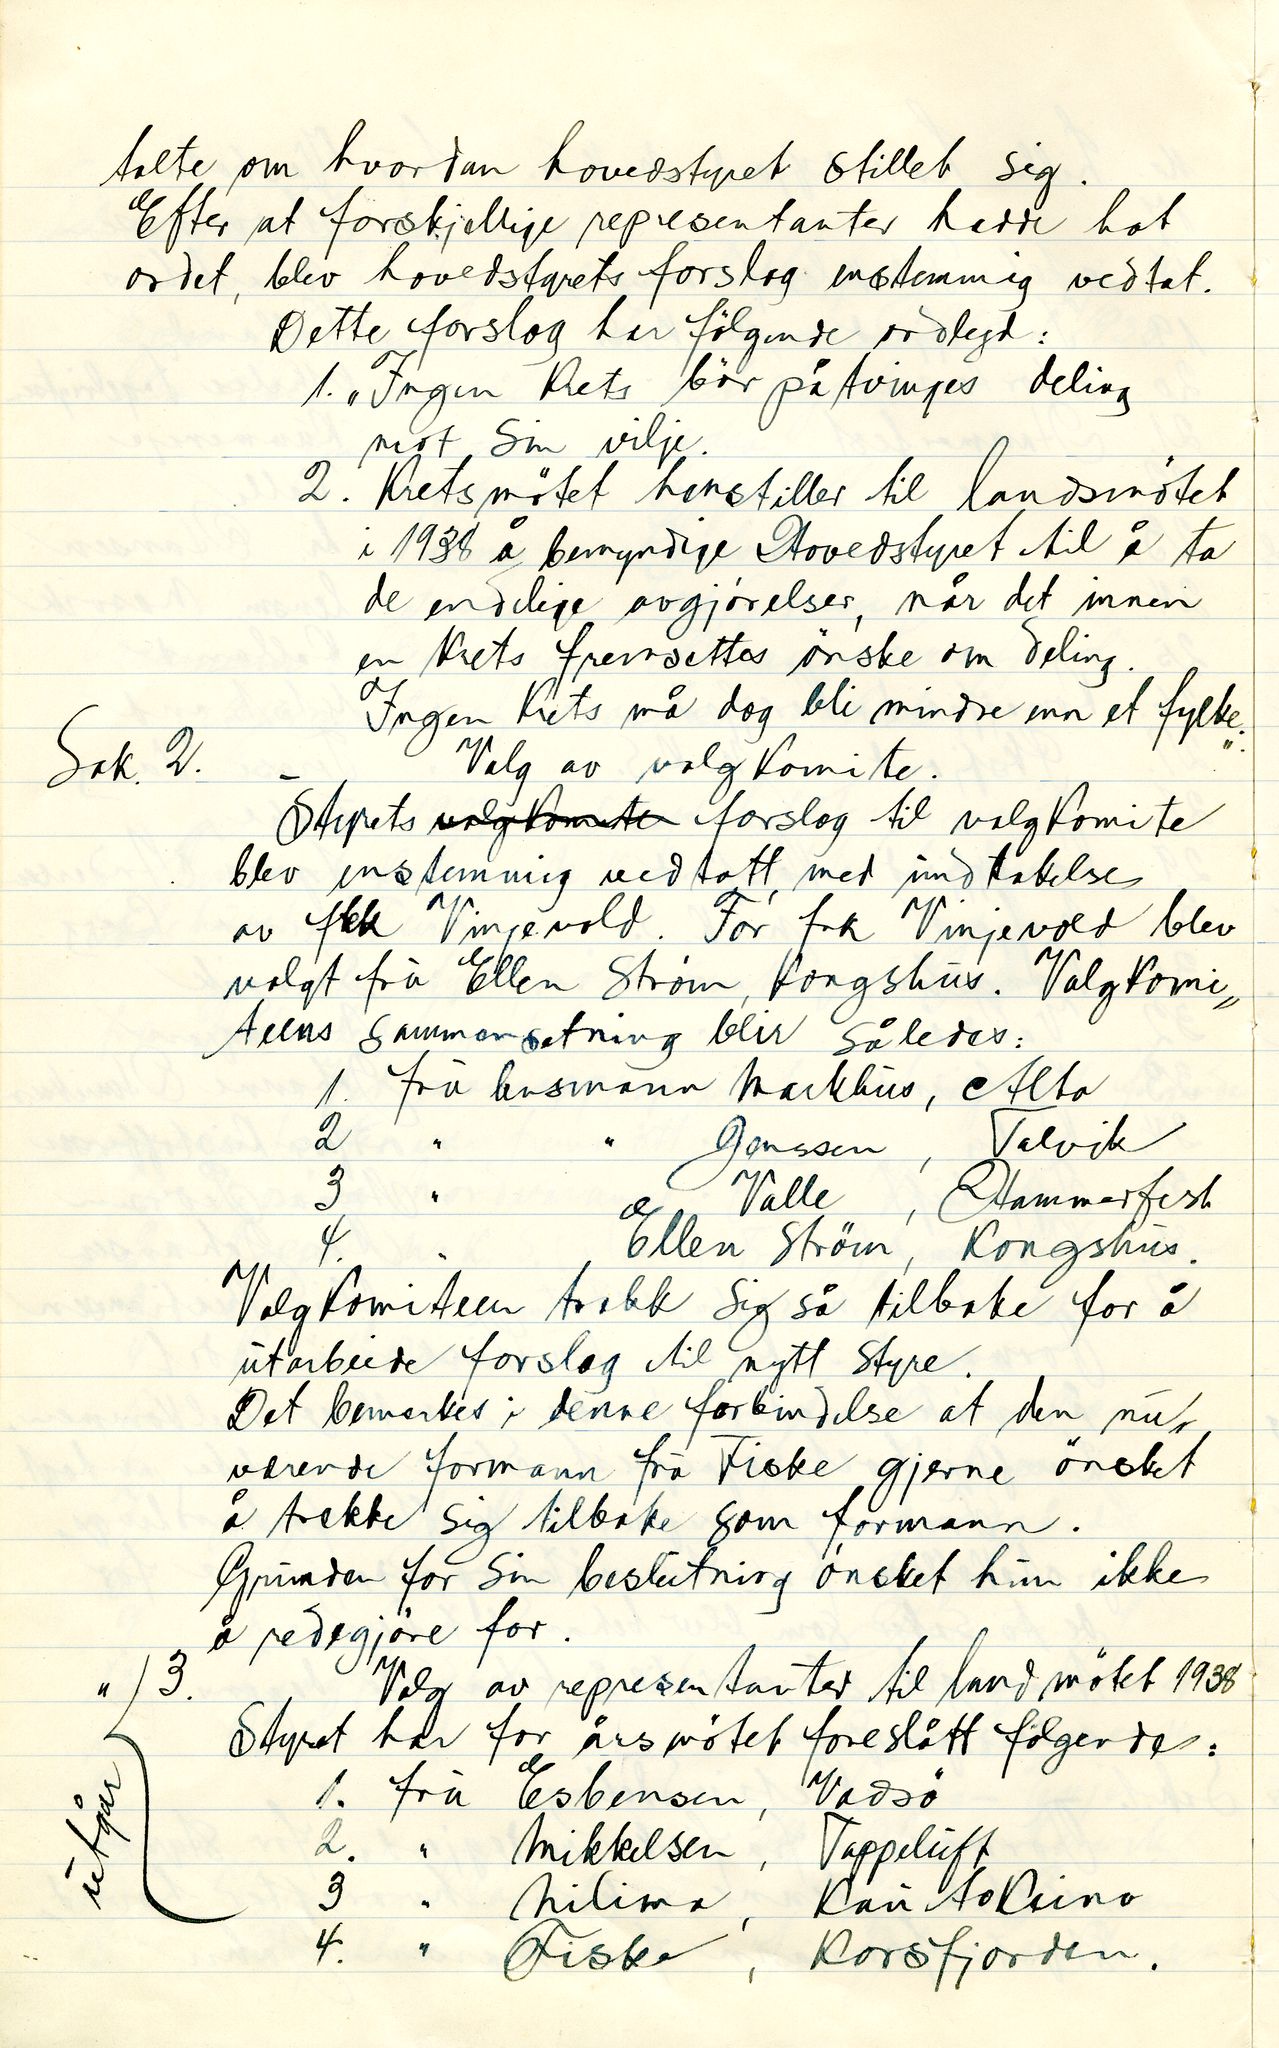 talte om hvordan hovedstyret stillet sig.
Efter at forskjellige representanter hadde hat
ordet, blev hovedstyrets forslag enstemmig vedtat.
Dette forslag har følgende ordlyd:
1. „Ingen Krets bör påtvinges deling
mot sin vilje.
2. Kretsmötet henstiller til landsmötet
i 1938 å bemyndige Hovedstyret til å ta
de endelige avgjörelser, når det innen
en Krets fremsettes önske om deling.
Ingen Krets må dog bli mindre enn et fylke.“
Sak. 2. Valg av valgkomite.
Styrets valgkomite forslag til valgkomite
blev enstemmig vedtatt, med undtakelse
av frk Vinjevold. For frk Vinjevold blev
valgt frü Ellen Ström, Kongshus. Valgkomi„
teens sammensetning blir således:
1. frü lensmann Markhus, Alta
2 " " Jenssen, Talvik
3 " Valle, Hammerfest
4. " Ellen Ström, Kongshus.
Valgkomiteen trakk sig så tilbake for å
utarbeide forslag til nytt styre.
Det bemerkes i denne forbindelse at den nu„
værende formann frü Fiske gjerne önsket
å trekke sig tilbake som formann.
Grunden for sin beslutning önsket hun ikke
å redegjöre for.
" 3. Valg av representanter til landmötet 1938
Styret har for årsmötet foreslått fölgende:
utgår
1. frü Esbensen, Vadsö
2. " Mikkelsen, Tappeluft
3 " Nilima, Kautokeino
4. " Fiske, Korsfjorden.